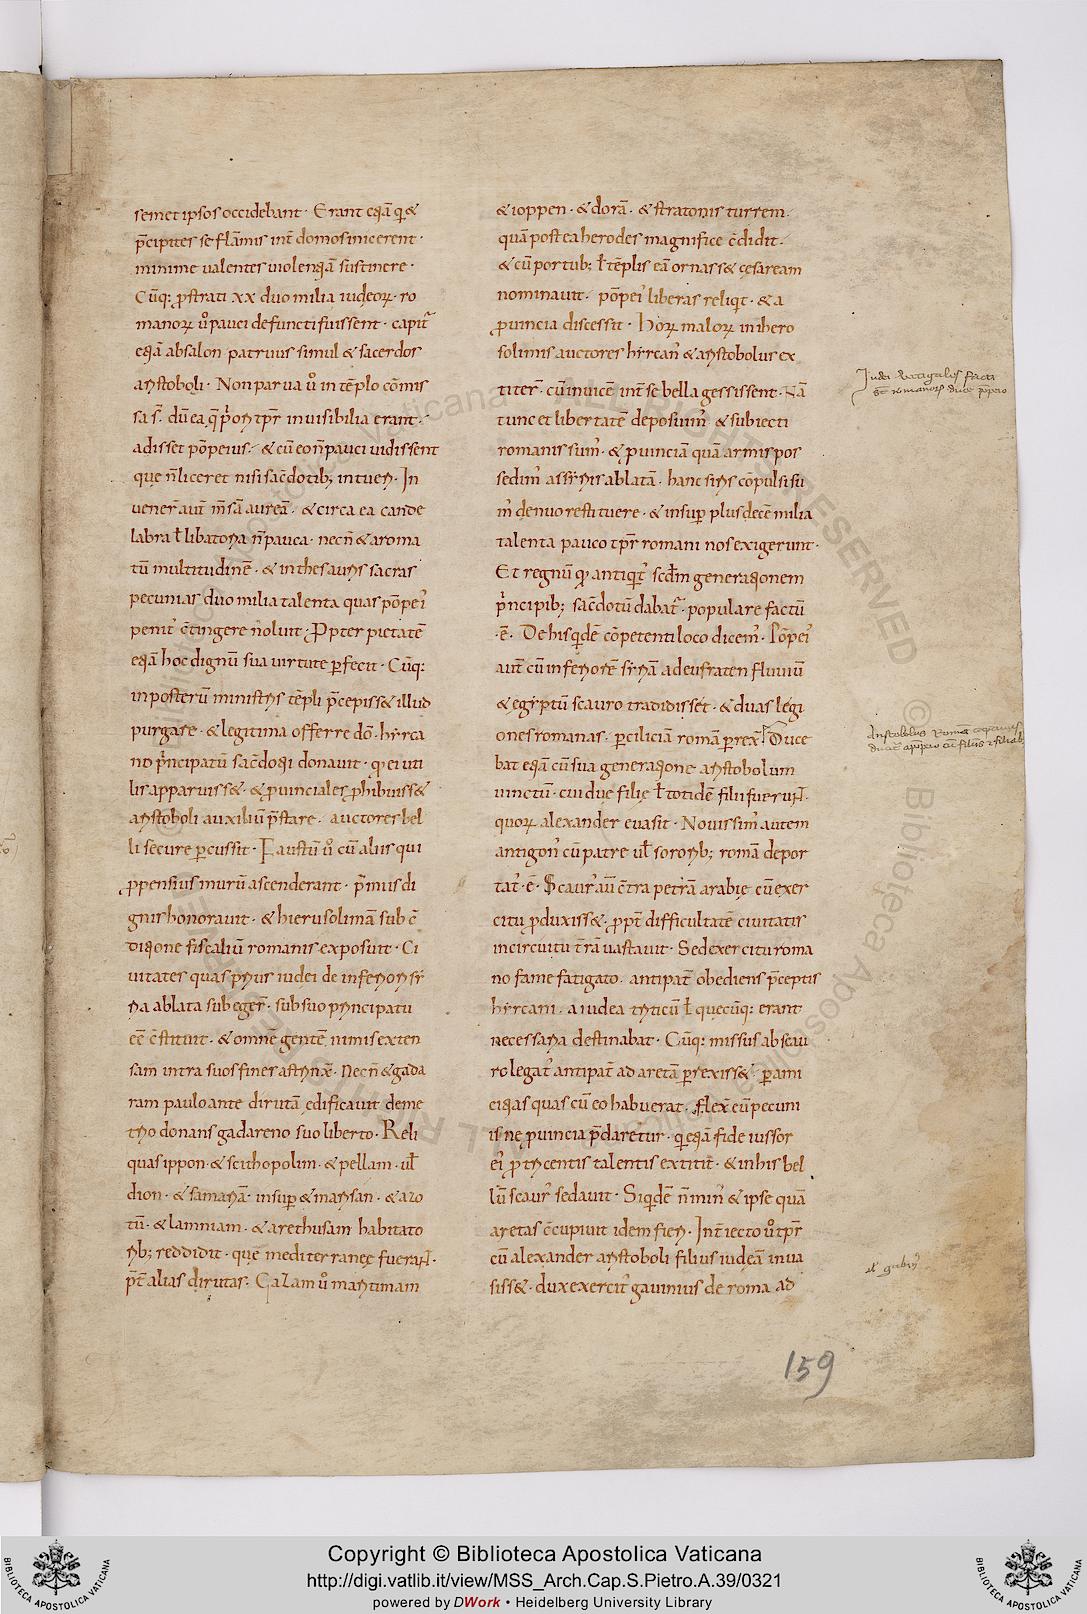 semet ipsos occidebant · Erant &ęā qi &
p̄cipites se flāmis int̄ domos inicerent ·
minime ualentes uiolentiā sustinere ·
Cūq; ꝓstrati xx duo milia iudeoꝝ · ro
manoꝝ ů pauci defuncti fuissent · capit᷑
etiā absalon patruus simul & sacerdos
aristoboli · Non parua ů in tēplo cōmis
sa s̄ · dū ea q̄ p̍ori tp̄r inuisibilia erant ·
adisset pōpeius · & cū eo n̄ pauci uidissent
que n̄ liceret nisi sac̄dotib; intueri · In
uener̄ aut̄ m̄sā aureā · & circa ea cande
labra ł libatoria n̄ pauca · necn̄ & aroma
tū multitudinē · & in thesauris sacras
pecunias duo milia talenta quas pōpei᷒
penit᷒ c̄tingere noluit · Ꝓpter pietatē
etiā hoc dignū sua uirtute ꝑfecit · Cūq;
in posterū ministris tēpli p̄cepiss& illud
purgare · & legitima offerre dō · hẏrca
no p̍ncipatū sac̄dotii donauit · qi ei uti
lis apparuiss& · & ꝓuinciales ꝓhibuiss&
aristoboli auxiliū p̄stare · auctores bel
li secure ꝑcussit · Faustū ů cū aliis qui
ꝓpensius murū ascenderant · p̍mis di
gnis honorauit · & hierusolimā sub c̄
ditione fiscaliū romanis exposuit · Ci
uitates quas prius iudei de inferiori sẏ
ria ablata subeger̄ · sub suo principatu
eē c̄stituit · & omnē gentē nimis exten
sam intra suos fines astrinx̄ · Necn̄ & gada
ram paulo ante dirutā ędificauit deme
trio donans gadareno suo liberto · Reli
quas ippon · & scithopolim · & pellam · ul̄
dion · & samariā · insuꝑ & marisan · & azo
tū · & lamniam · & arethusam habitato
rib; reddidit · quę mediterraneę fuerant ·
p̄t alias dirutas · Gazam ů maritimam
& ioppen · & dorā · & stratonis turrem ·
quā postea herodes magnifice c̄didit ·
& cū portub; ł tēplis eā ornass& cęsaream
nominauit · pōpei᷒ liberas reliqit · & a
ꝓuincia discessit · Horꝝ maloꝝ in ihero
solimis auctores hẏrcan᷒ & aristobolus ex
titer̄ · cū inuicē int̄ se bella gessissent · Nā
tunc et libertatē deposuim᷒ & subiecti
romanis sum᷒ · & ꝓuinciā quā armis pos
sedim᷒ assẏriis ablatā · hanc siris cōpulsi su
m᷒ denuo restituere · & insuꝑ plus decē milia
talenta pauco tp̄r romani nos exigerunt ·
Et regnū qi antiqit᷒ scd̄m generationem
p̍ncipib; sac̄dotū dabat᷑ · populare factū
· ē · De his qidē cōpetenti loco dicem᷒ · Pōpei᷒
aut̄ cū inferiorē sẏriā ad eufraten fluuiū
& egẏptū scauro tradidiss& · & duas legi
ones romanas · ꝑ ciliciā romā ꝑrex̄ · Duce
bat etiā cū sua generatione aristobolum
uinctū · cui due filię ł totidē filii fuerunt ·
quoꝝ alexander euasit · Nouissim᷒ autem
antigon᷒ cū patre ul̄ sororib; romā depor
tat᷒ · ē · Scaur᷒ aū c̄tra petrā arabię cū exer
citu ꝓduxiss& · ꝓpt̄ difficultatē ciuitatis
incircuitu t̄rā uastauit · Sed exercitu roma
no fame fatigato · antipat̄ obediens p̄ceptis
hẏrcani · a iudea triticū ł quecūq; erant
necessaria destinabat · Cūq; missus ab scau
ro legat᷒ antipat̄ ad aretā ꝑrexiss& · ꝑ ami
citias quas cū eo habuerat · flex̄ eū pecuni
is ne ꝓuincia p̄daretur · qi etiā fide iussor
ei᷒ ꝓ trecentis talentis extitit · & in his bel
lū scaur᷒ sedauit · Siqidē n̄ min᷒ & ipse quā
aretas c̄cupiuit idem fieri · Int̄iecto ů tp̄r
cū alexander aristoboli filius iudęā inua
siss& · dux exercit᷒ gauinius de roma ad
Iudei vectigales facti
st̄ romanoꝝ duce pōpeio
Aristobolus Romā captiuus
ducit᷑ a pōpeio cū filiis ⁊ filiab;
al̄ gabini᷒
159
Copyright © Biblioteca Apostolica Vaticana
http://digi.vatlib.it/view/MSS_Arch.Cap.S.Pietro.A.39/0321
powered by DWork • Heidelberg University Library